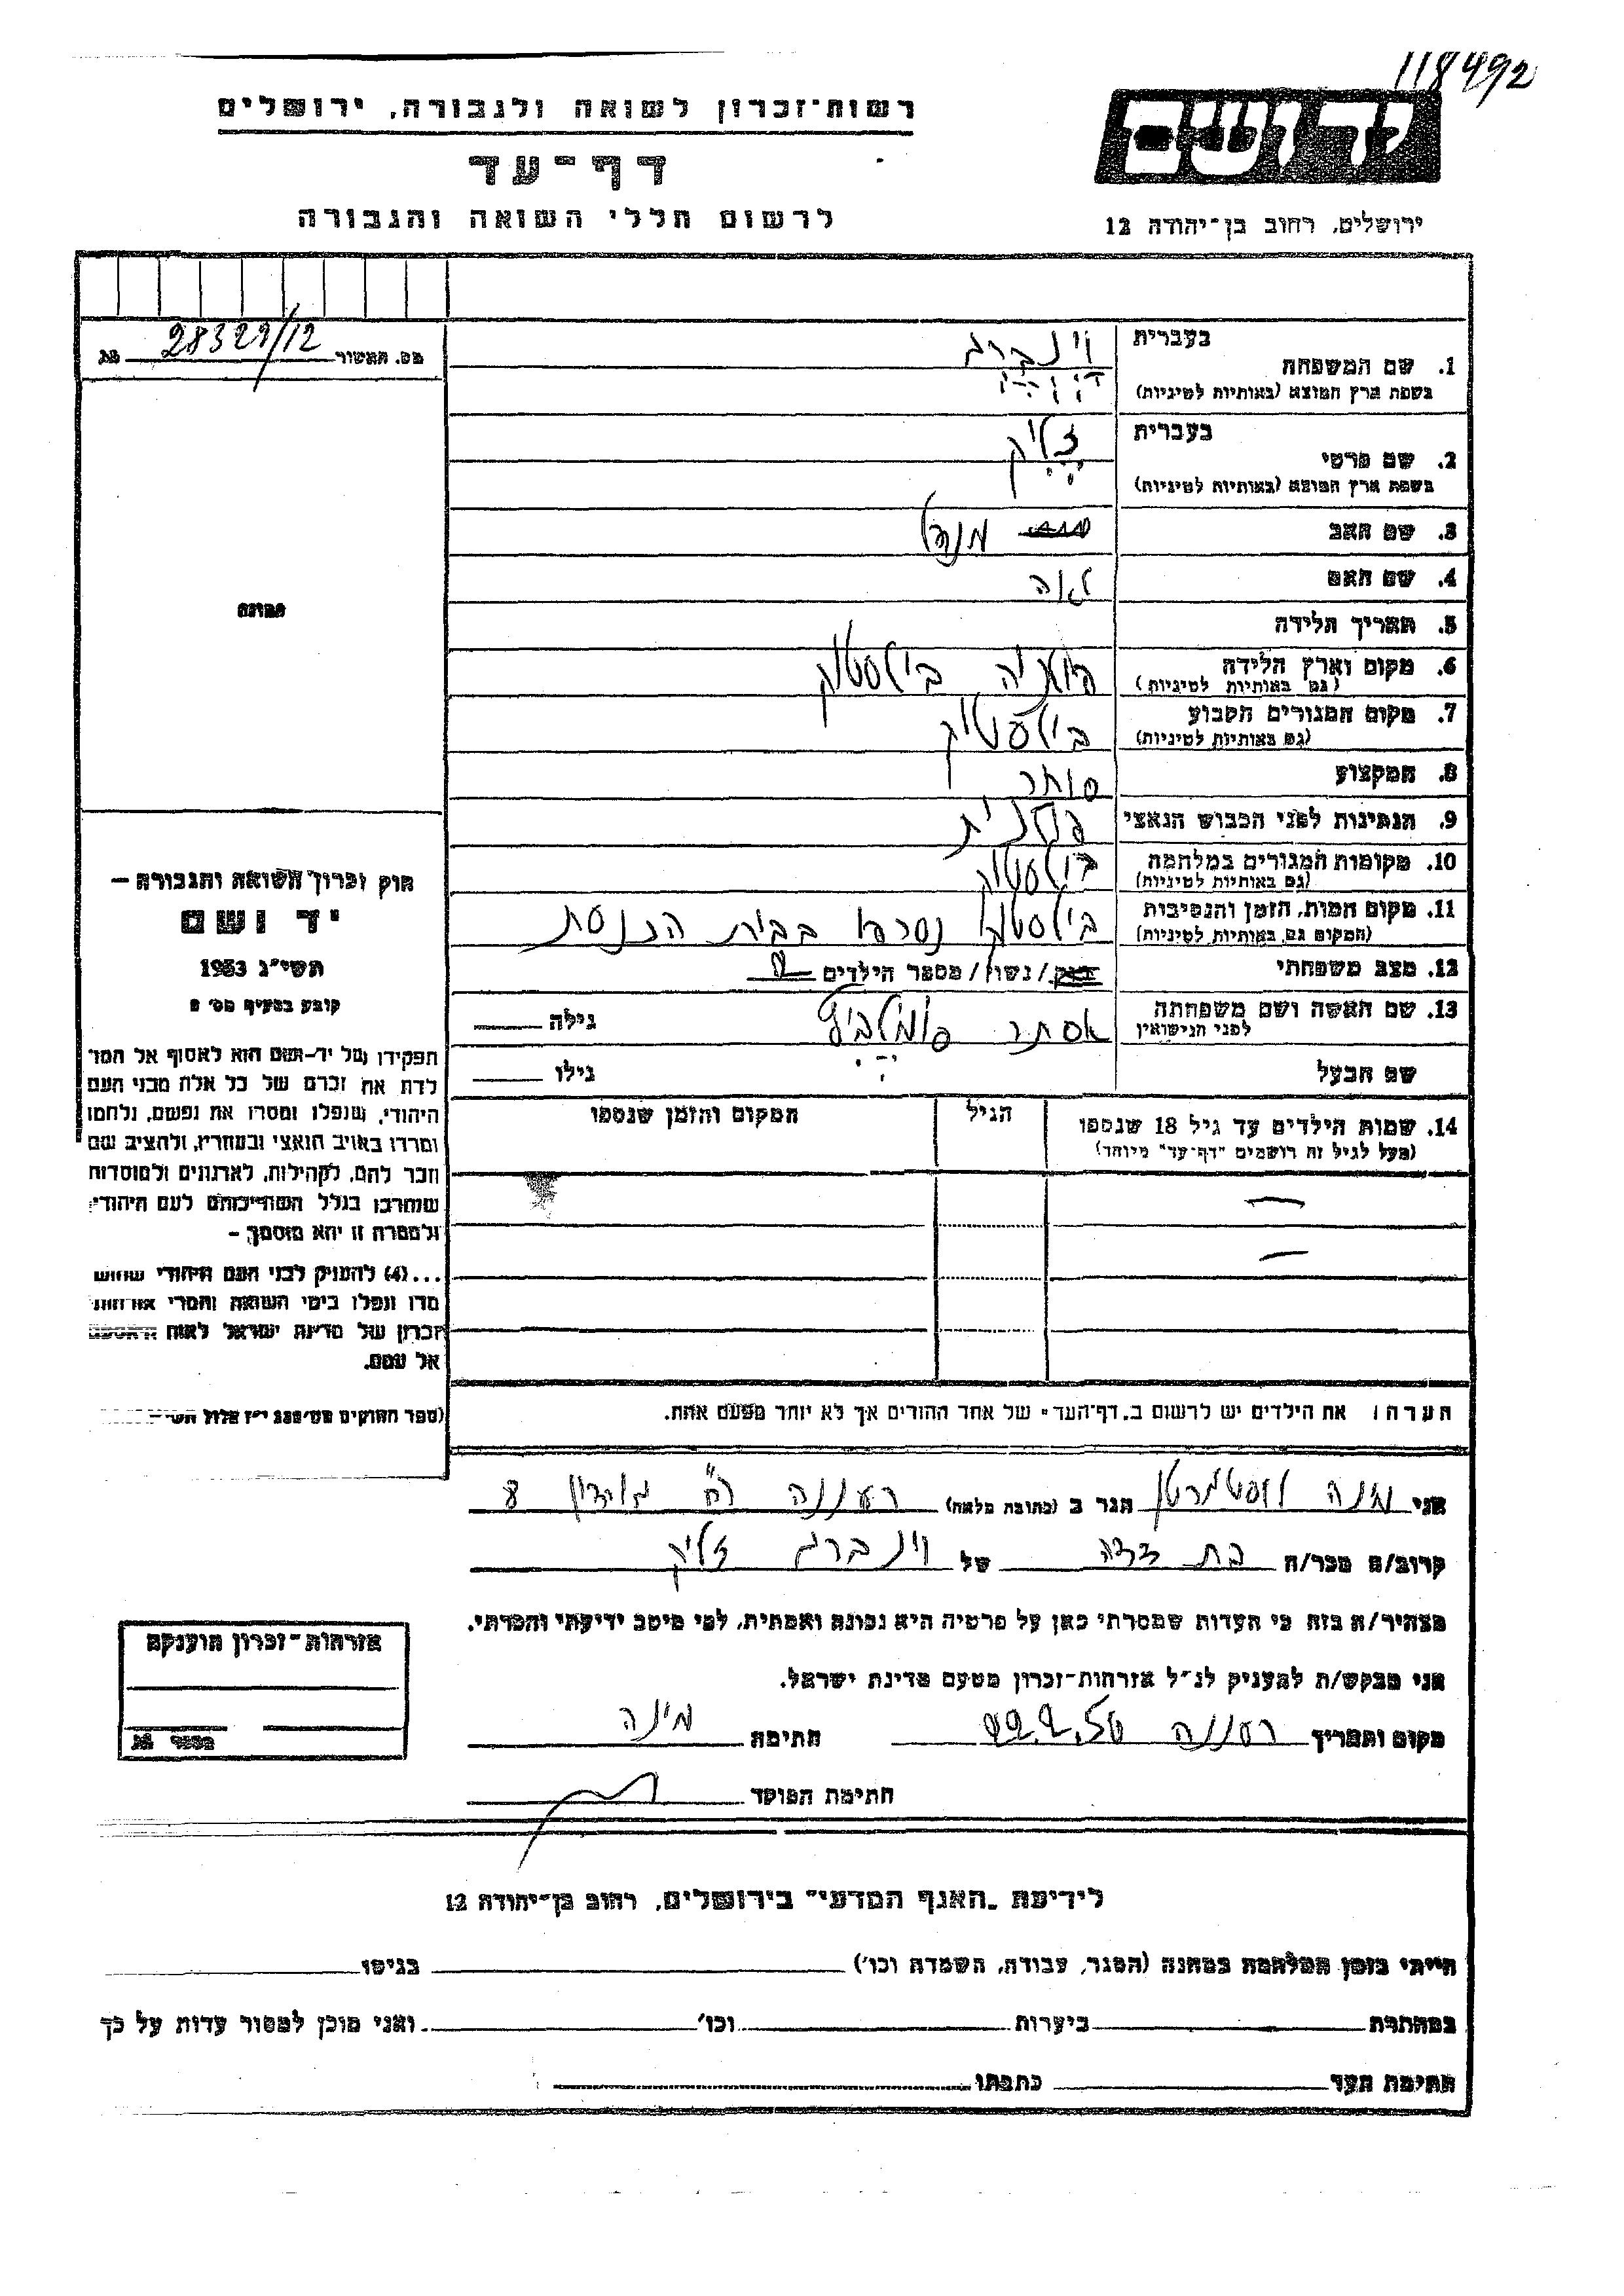 118492
רשות-זכרון לשואה ולגבורה, ירושלים
דף-עד
לרשום חללי השואה והגבורה
ירושלים, רחוב בן-יהודה 12
מס. האשור 28329/12
1. שם המשפחה
בעברית וינברג
בשפת ארץ המוצא (באותיות לטיניות)
2. שם פרטי
בעברית זליק
בשפת ארץ המוצא (באותיות לטיניות)
3. שם האב מנדל
4. שם האם לאה
5. תאריך הלידה
6. מקום וארץ הלידה ביאליסטוק
(גם באותיות לטיניות)
7. מקום המגורים הקבוע ביאליסטוק
(גם באותיות לטיניות)
8. המקצוע סוחר
9. הנתינות לפני הכבוש הנאצי פולנית
10. מקומות המגורים במלחמה ביאליסטוק
(גם באותיות לטיניות)
11. מקום המות, הזמן והנסיבות ביאליסטוק נשרף בבית הכנסת
(המקום גם באותיות לטיניות)
12. מצב משפחתי רווק/נשוי/מספר הילדים 2
13. שם האשה ושם משפחתה אסתר גילה
לפני הנישואין
שם הבעל גילו
14. שמות הילדים עד גיל 18 שנספו הגיל המקום והזמן שנספו
(מעל לגיל זה רושמים "דף-עד" מיוחד)
הערה: את הילדים יש לרשום ב"דף-העד" של אחד ההורים אך לא יותר מפעם אחת.
תמונה
חוק זכרון השואה והגבורה –
יד ושם
תשי"ג 1953
קובע בסעיף מס' 2
תפקידו של יד-ושם הוא לאסוף אל המולדת
את זכרם של כל אלה מבני העם
היהודי, שנפלו ומסרו את נפשם, נלחמו
ומרדו באויב הנאצי ובעוזריו, ולהציב שם
וזכר להם, לקהילות, לארגונים ולמוסדות
שנחרבו בגלל השתייכותם לעם היהודי,
ולמטרה זו יהא מוסמך –
...(4) להעניק לבני העם היהודי שהושמדו
ונפלו בימי השואה והמרי אזרחות
זכרון של מדינת ישראל לאות האספם
אל עמם.
(ספר החוקים
אני מינה הגר ב (כתובת מלאה) רעננה רח' 8
קרוב/ה מכר/ה בת דודה של וינברג זליק
מצהיר/ה בזה כי העדות שמסרתי כאן על פרטיה היא נכונה ואמתית, לפי מיטב ידיעתי והכרתי.
אני מבקש/ת להעניק לנ"ל אזרחות-זכרון מטעם מדינת ישראל.
מקום ותאריך רעננה 22.2.56 חתימה מינה
חתימת הפוקד
אזרחות-זכרון הוענקה
מספר
לידיעת "האגף המדעי" בירושלים, רחוב בן-יהודה 12
הייתי בזמן המלחמה במחנה (הסגר, עבודה, השמדה וכו') בגיטו
במחתרת ביערות וכו' ואני מוכן למסור עדות על כך
חתימת העד כתבתו